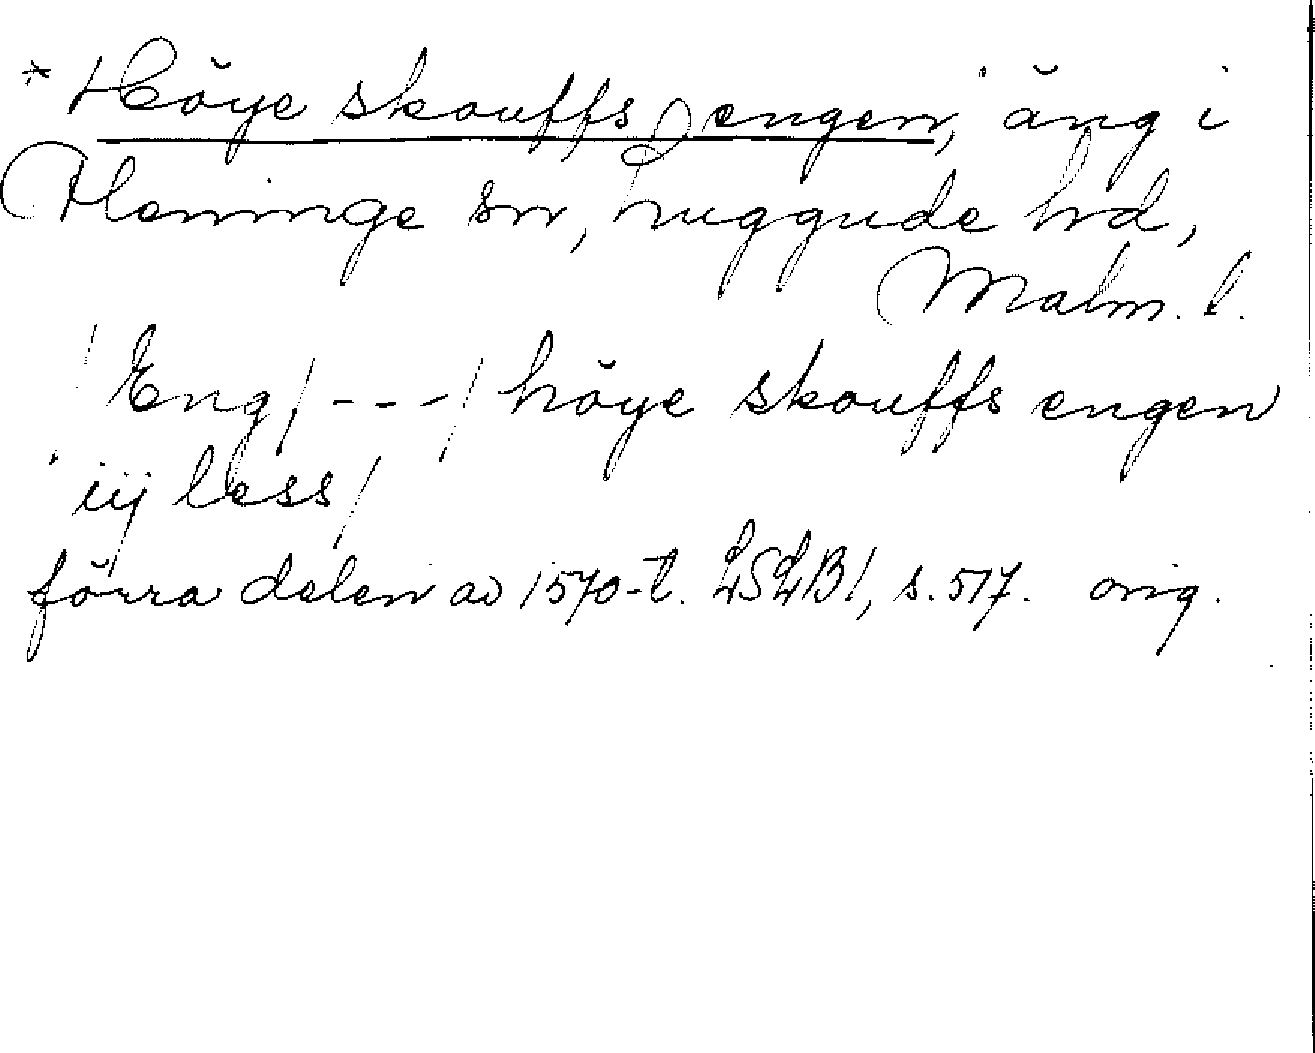 * Höye skouffs engen, äng i
Fleninge sn, Luggude hd,
Malm. l.
Eng/---/höye skouffs engen
iij less/
förra delen av 1570-t. LSLB1, s. 517. orig.